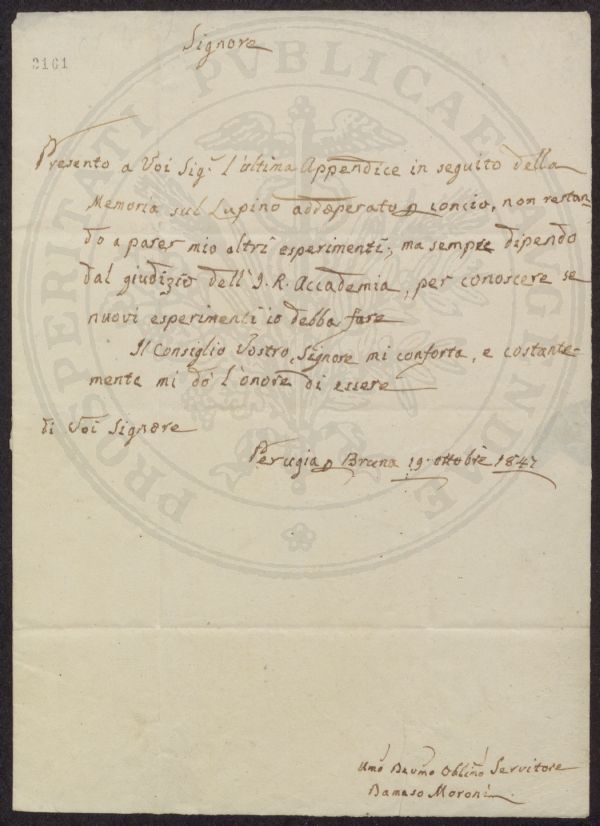 Signore
2161
PROSPERITATI PVBLICAE AVGENDAE
Presento a Voi Sig.r l'ultima Appendice in seguito della
Memoria sul Lupino addoperato p concio, non restan-
do a parer mio altri esperimenti; ma sempre dipendo
dal giudizio dell'I. R. Accademia, per conoscere se
nuovi esperimenti io debba fare
Il Consiglio Vostro, Signore mi conforta, e costante-
mente mi dò l'onore di essere
di Voi Signore
Perugia p Bruna 19. ottobre 1847
Umo Devmo Oblmo Servitore
Damaso Moroni